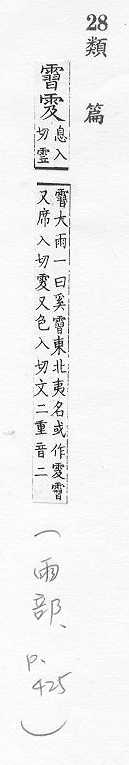 28
類篇
霫䨏息入切霊
霫大雨一曰奚霫東北夷名或作䨏霫
又席入切䨏又色入切文二重音二
(雨部、p.425)